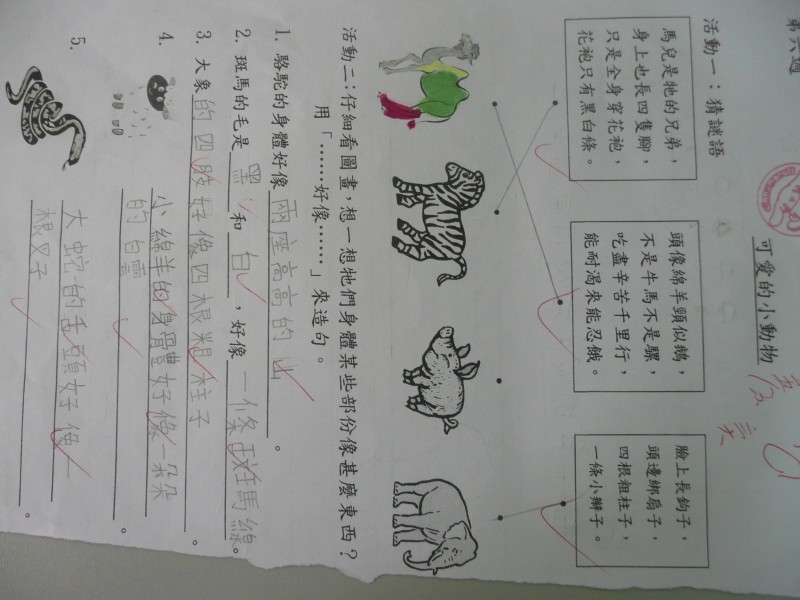 第六週
可愛的小動物
活動一：猜謎語
馬兒是牠的兄弟，
身上也長四隻腳，
只是全身穿花袍，
花袍只有黑白條。
頭像綿羊頸似鵝，
不是牛馬不是騾，
吃盡辛苦千里行，
能耐渴來能忍餓。
臉上長鉤子，
頭邊綁扇子，
四根粗柱子，
一條小辮子。
活動二：仔細看圖畫，想一想牠們身體某些部份像甚麼東西？
用「……好像……」來造句。
1. 駱駝的身體好像兩座高高的山。
2. 斑馬的毛是黑和白，好像一條斑馬線。
3. 大象的四肢好像四根粗柱子
4. 小綿羊的身體好像一朵朵
的白雲。
5. 大蛇的舌頭好像一
根叉子。